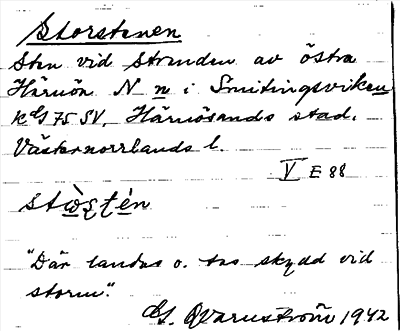 Storstenen
Sten vid stranden av östra
Härnön N n i Smitingsviken
kbl 75 SV. Härnösands stad.
Västernorrlands l.
V E 88
stòṣṭén
"Där landas o. tas skydd vid
storm".
G. Qvarnström 1942